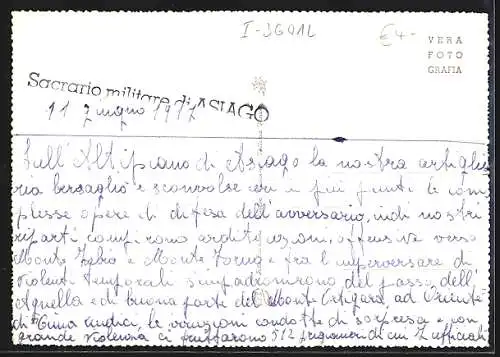 I-3691L
€4-
VERA
FOTO
GRAFIA
Sacrario militare di ASIAGO
11 giugno 1917
Sull'Altipiano di Asiago la nostra artiglie
ria bersagliò e sconvolse in più punti le com
plesse opere di difesa dell'avversario, indi nostri
riparti compirono ardite azioni offensive verso
Monte Zebio e Monte Forno e fra l'imperversare di
violenti temporali s'impadronirono del passo dell'
Agnella e di buona parte del Monte Ortigara, ad Oriente
di Cima Undici, le azioni condotte di sorpresa e con
grande violenza ci fruttarono 512 prigionieri di cui 7 ufficiali